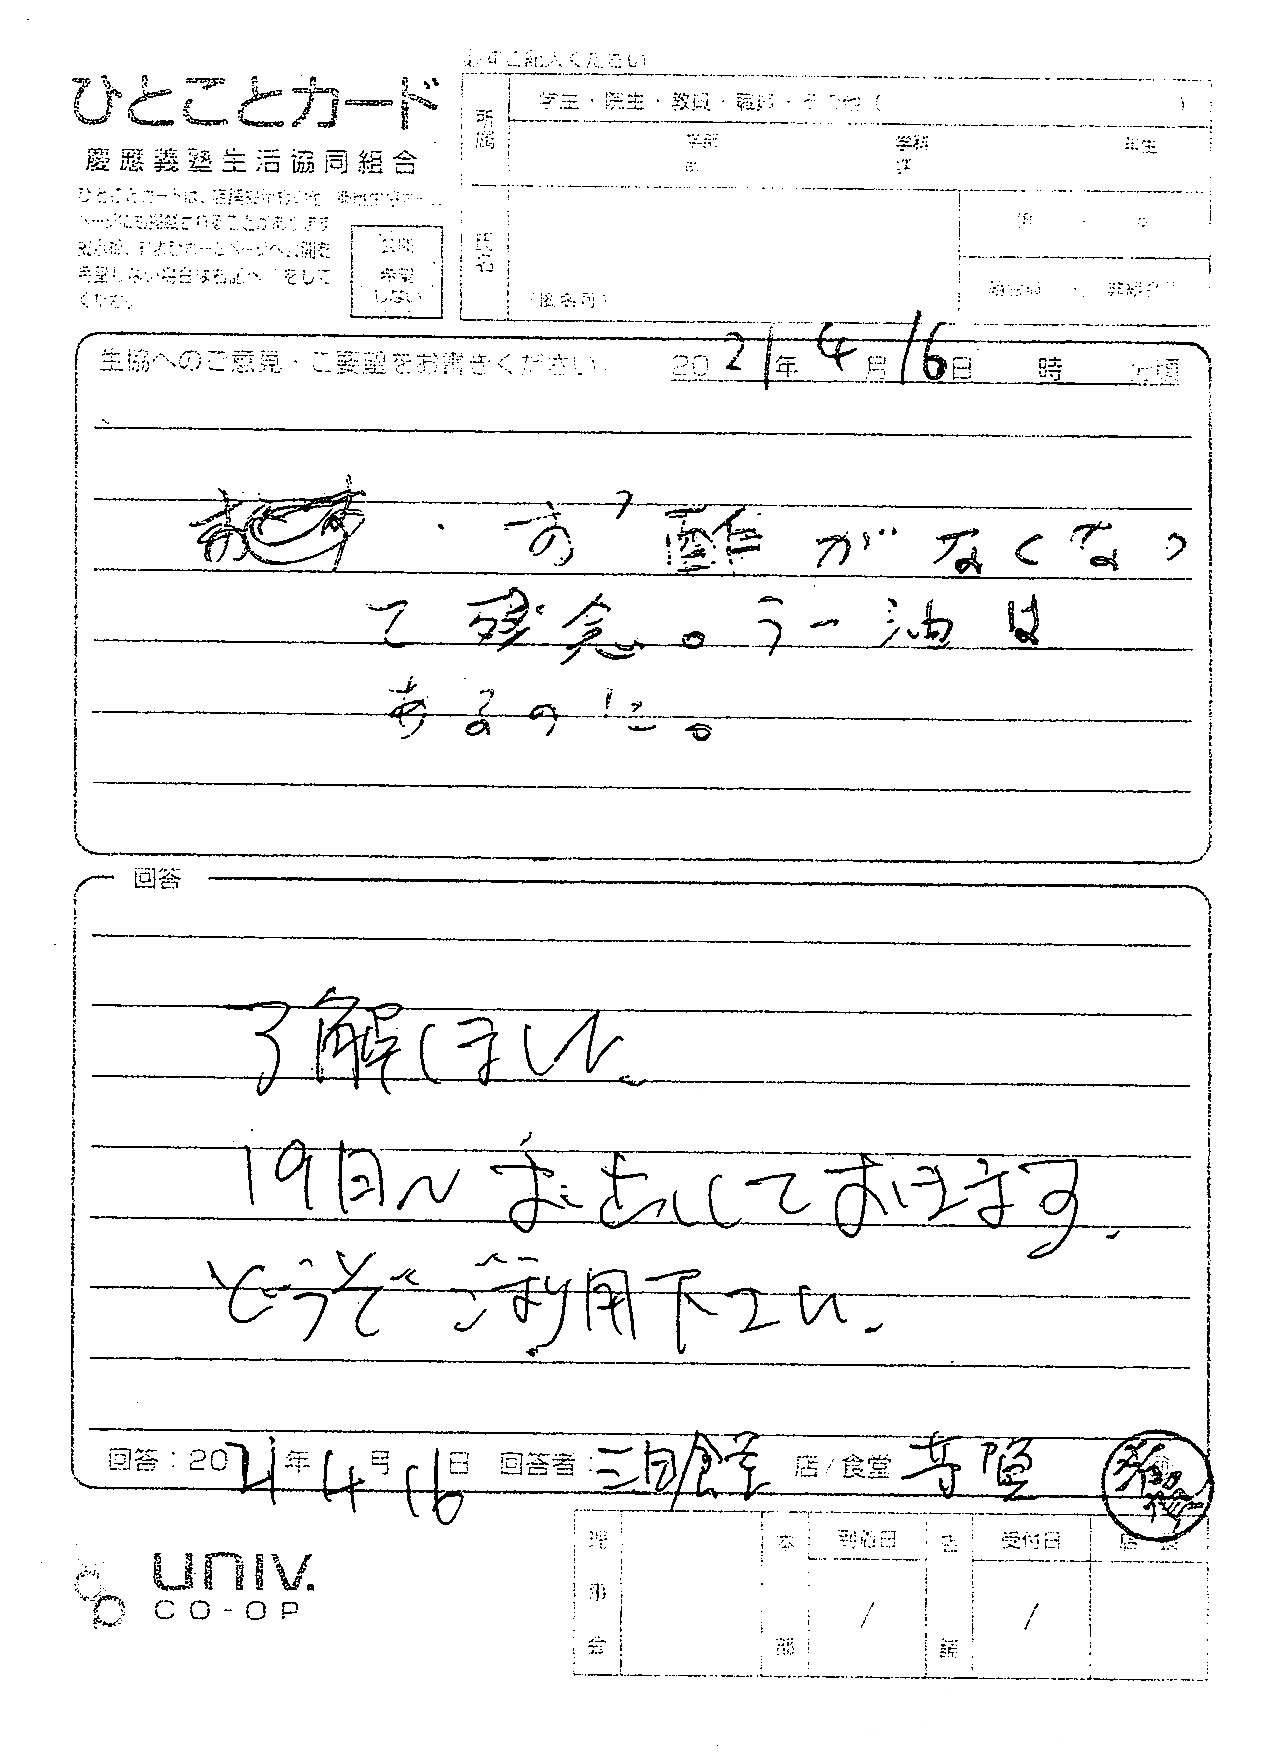 必ずご記入ください
ひとことカード
慶應義塾生活協同組合
所属
学生・院生・教員・職員・その他（　　）
学部
学科
年生
ページにも掲載されることがあります
希望しない場合は右記へ
をして
ください
公開
希望
しない
氏名
（匿名可）
生協へのご意見・ご要望をお書きください
2021年4月16日　時　分頃
・お酢がなくなっ
て残念。ラー油は
あるのに。
回答
了解しました。
19日〜
しておきます。
どうぞご利用下さい。
回答：2021年4月16日　回答者：三田食堂　店/食堂
理事会
本部
到着日
/
店舗
受付日
/
店長
univ.
CO-OP